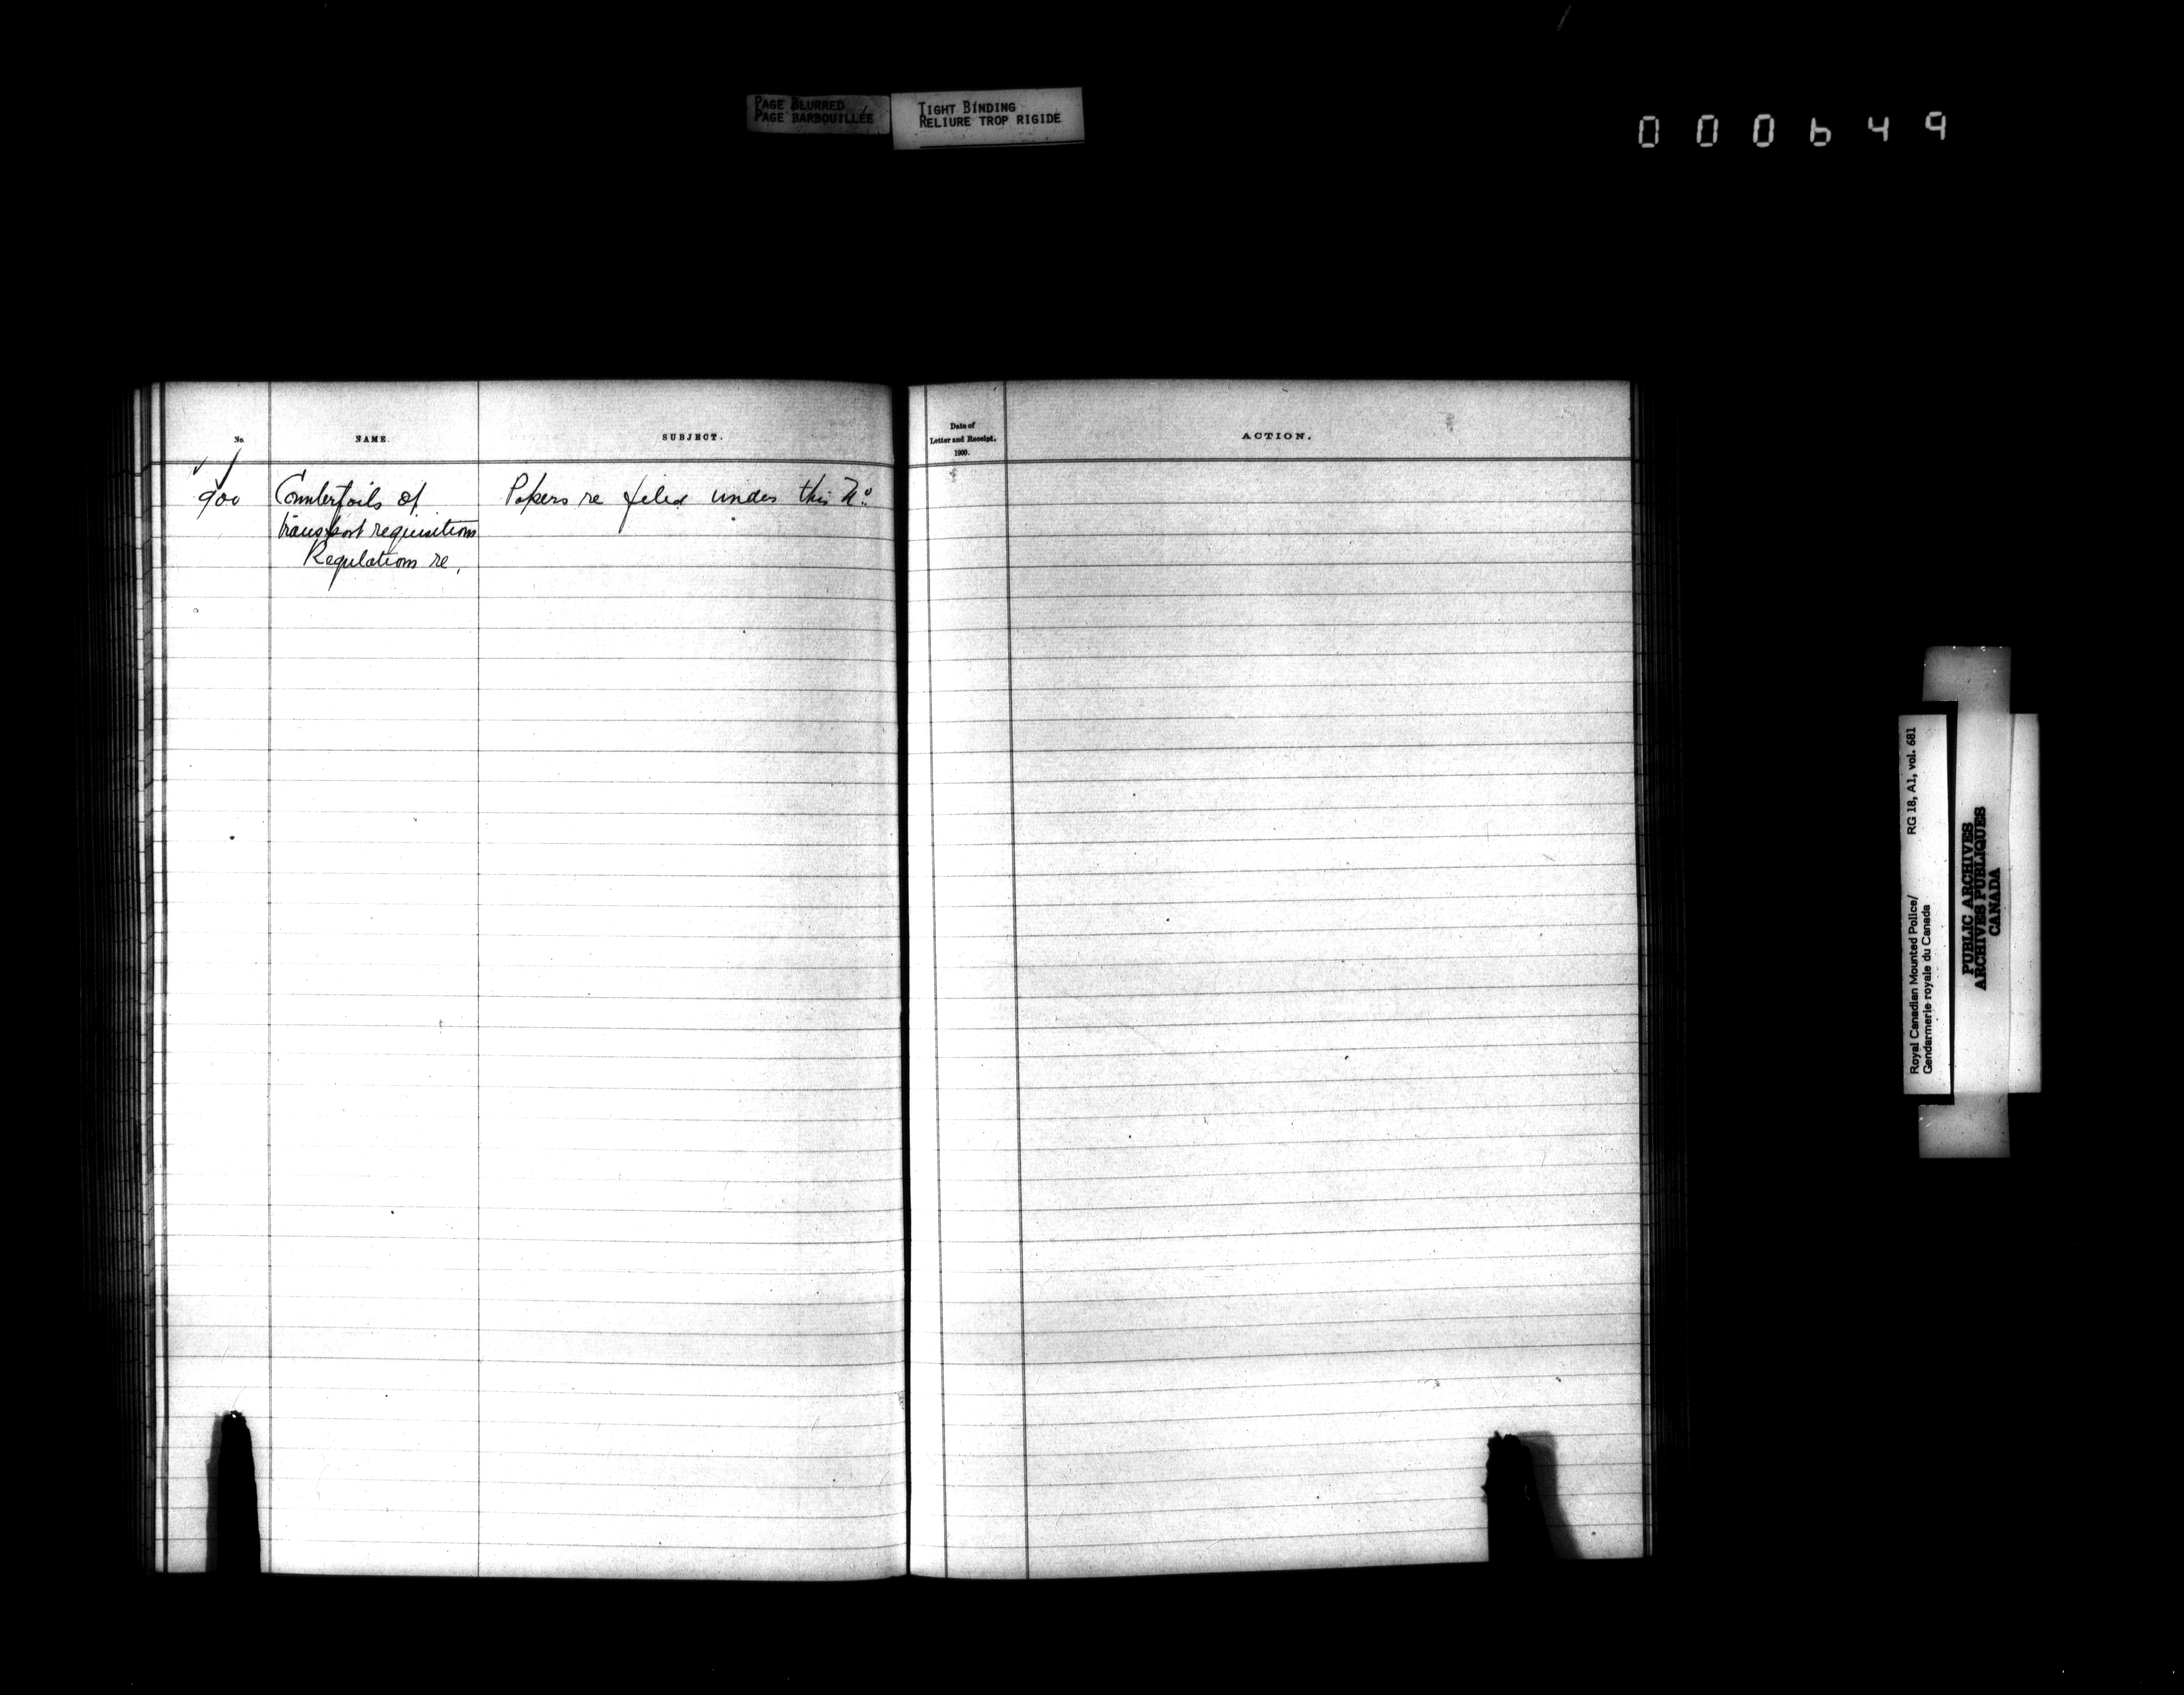 PAGE BLURRED
PAGE BARBOUILLÉE
TIGHT BINDING
RELIURE TROP RIGIDE
000649
No. NAME. SUBJECT. Date of Letter and Receipt, 1900. ACTION.
900 Counterfoils of Papers re filed under this No.
transport requisitions
Regulations re,
Royal Canadian Mounted Police/ RG 18, A1, vol. 681
Gendarmerie royale du Canada
PUBLIC ARCHIVES
ARCHIVES PUBLIQUES
CANADA